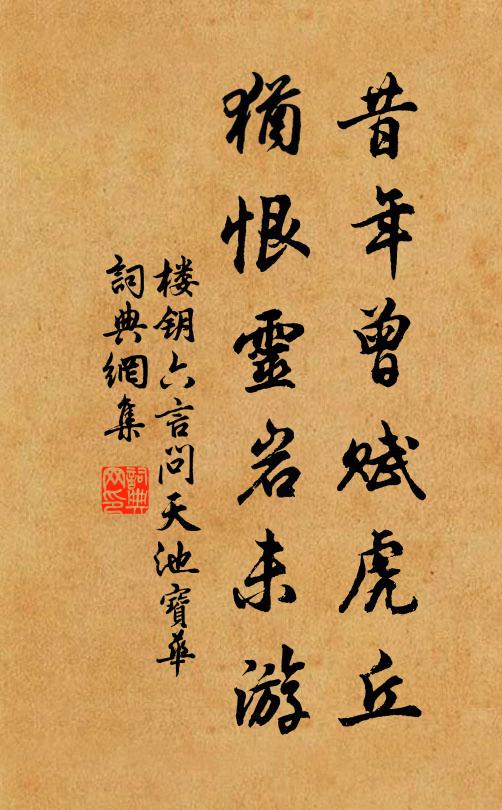 昔年曾赋虎丘
犹恨靈岩未游
楼钥六言问天池寶華
詞典網集
詞典網印